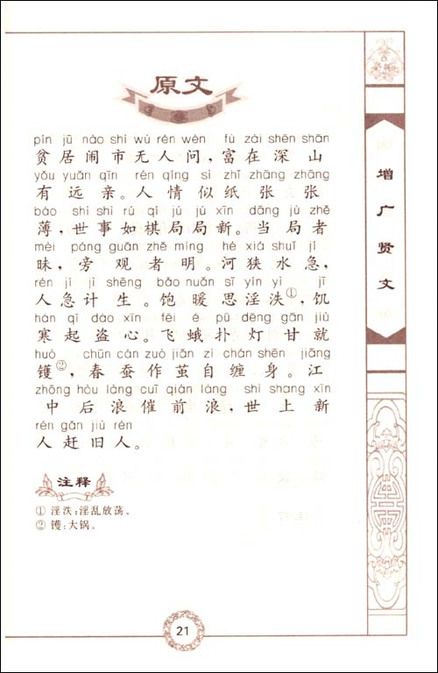 原文
pín jū nào shì wú rén wèn fù zài shēn shān
贫居闹市无人问,富在深山
yǒu yuǎn qīn rén qíng sì zhǐ zhāng zhāng
有远亲。人情似纸张张
báo shì shì rú qí jú jú xīn dāng jú zhě
薄,世事如棋局局新。当局者
mèi páng guān zhě míng hé xiá shuǐ jí
昧,旁观者明。河狭水急,
rén jí jì shēng bǎo nuǎn sī yín yì jī
人急计生。饱暖思淫泆①,饥
hán qǐ dào xīn fēi é pū dēng gān jiù
寒起盗心。飞蛾扑灯甘就
huò chūn cán zuò jiǎn zì chán shēn jiāng
镬②,春蚕作茧自缠身。江
zhōng hòu làng cuī qián làng shì shang xīn
中后浪催前浪,世上新
rén gǎn jiù rén
人赶旧人。
注释
① 淫泆:淫乱放荡。
② 镬:大锅。
增广贤文
21